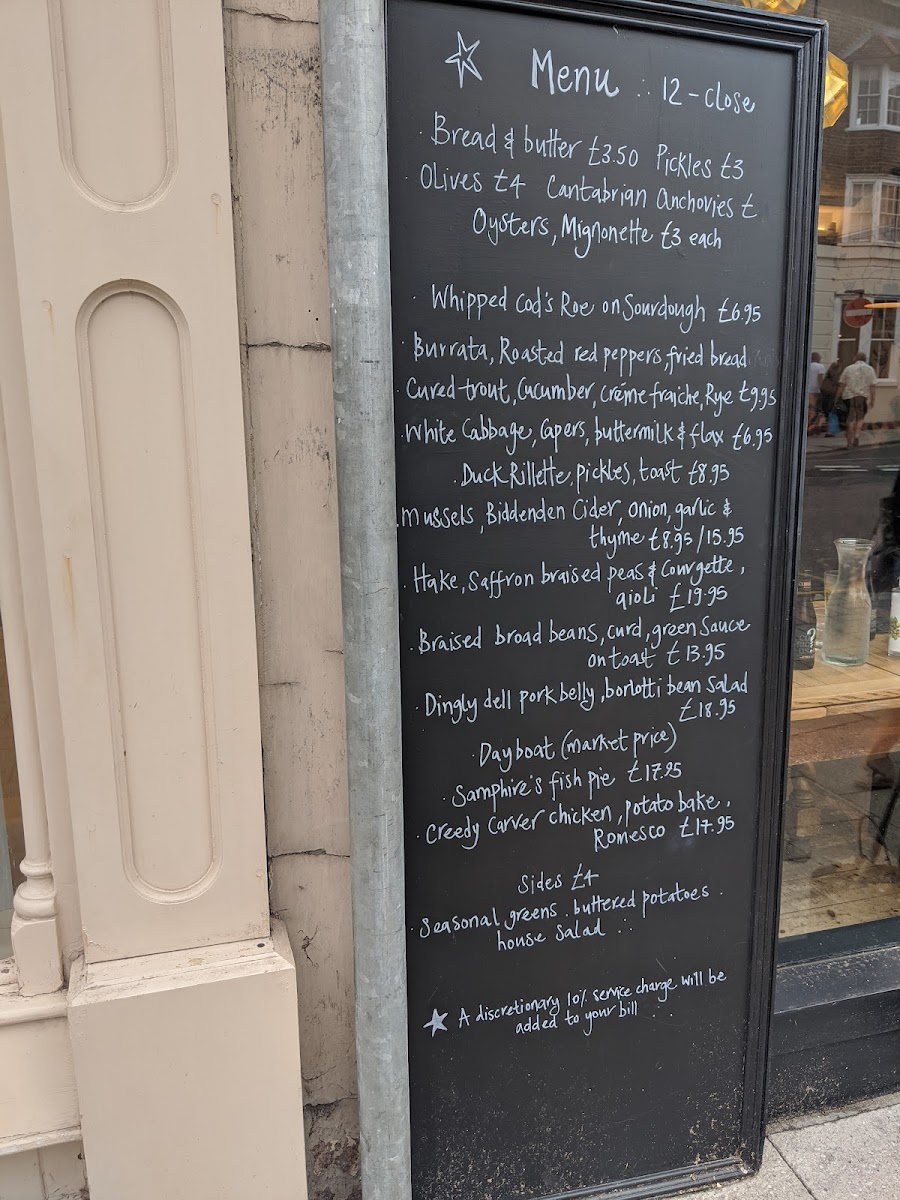 Menu ∴ 12 - close
Bread & butter £3.50 Pickles £3
Olives £4 Cantabrian anchovies £
Oysters, Mignonette £3 each
Whipped Cod's Roe on Sourdough £6.95
Burrata, Roasted red peppers, fried bread
Cured trout, Cucumber, créme fraiche, Rye £9.95
White Cabbage, Capers, buttermilk & flax £6.95
Duck Rillette, pickles, toast £8.95
Mussels, Biddenden Cider, onion, garlic &
thyme £8.95/15.95
Hake, Saffron braised peas & Courgette,
aioli £19.95
Braised broad beans, curd, green Sauce
on toast £13.95
Dingly dell pork belly, borlotti bean Salad
£18.95
Dayboat (market price)
Samphire's fish pie £17.95
Creedy Carver chicken, potato bake,
Romesco £17.95
Sides £4
Seasonal greens . buttered potatoes .
house Salad
A discretionary 10% service charge will be
added to your bill